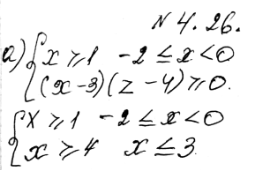 N 4. 26.
а) { x ⩾ 1 -2 ≤ x < 0
(x - 3)(z - 4) ⩾ 0.
{ x ⩾ 1 -2 ≤ x < 0
x ⩾ 4 x ≤ 3